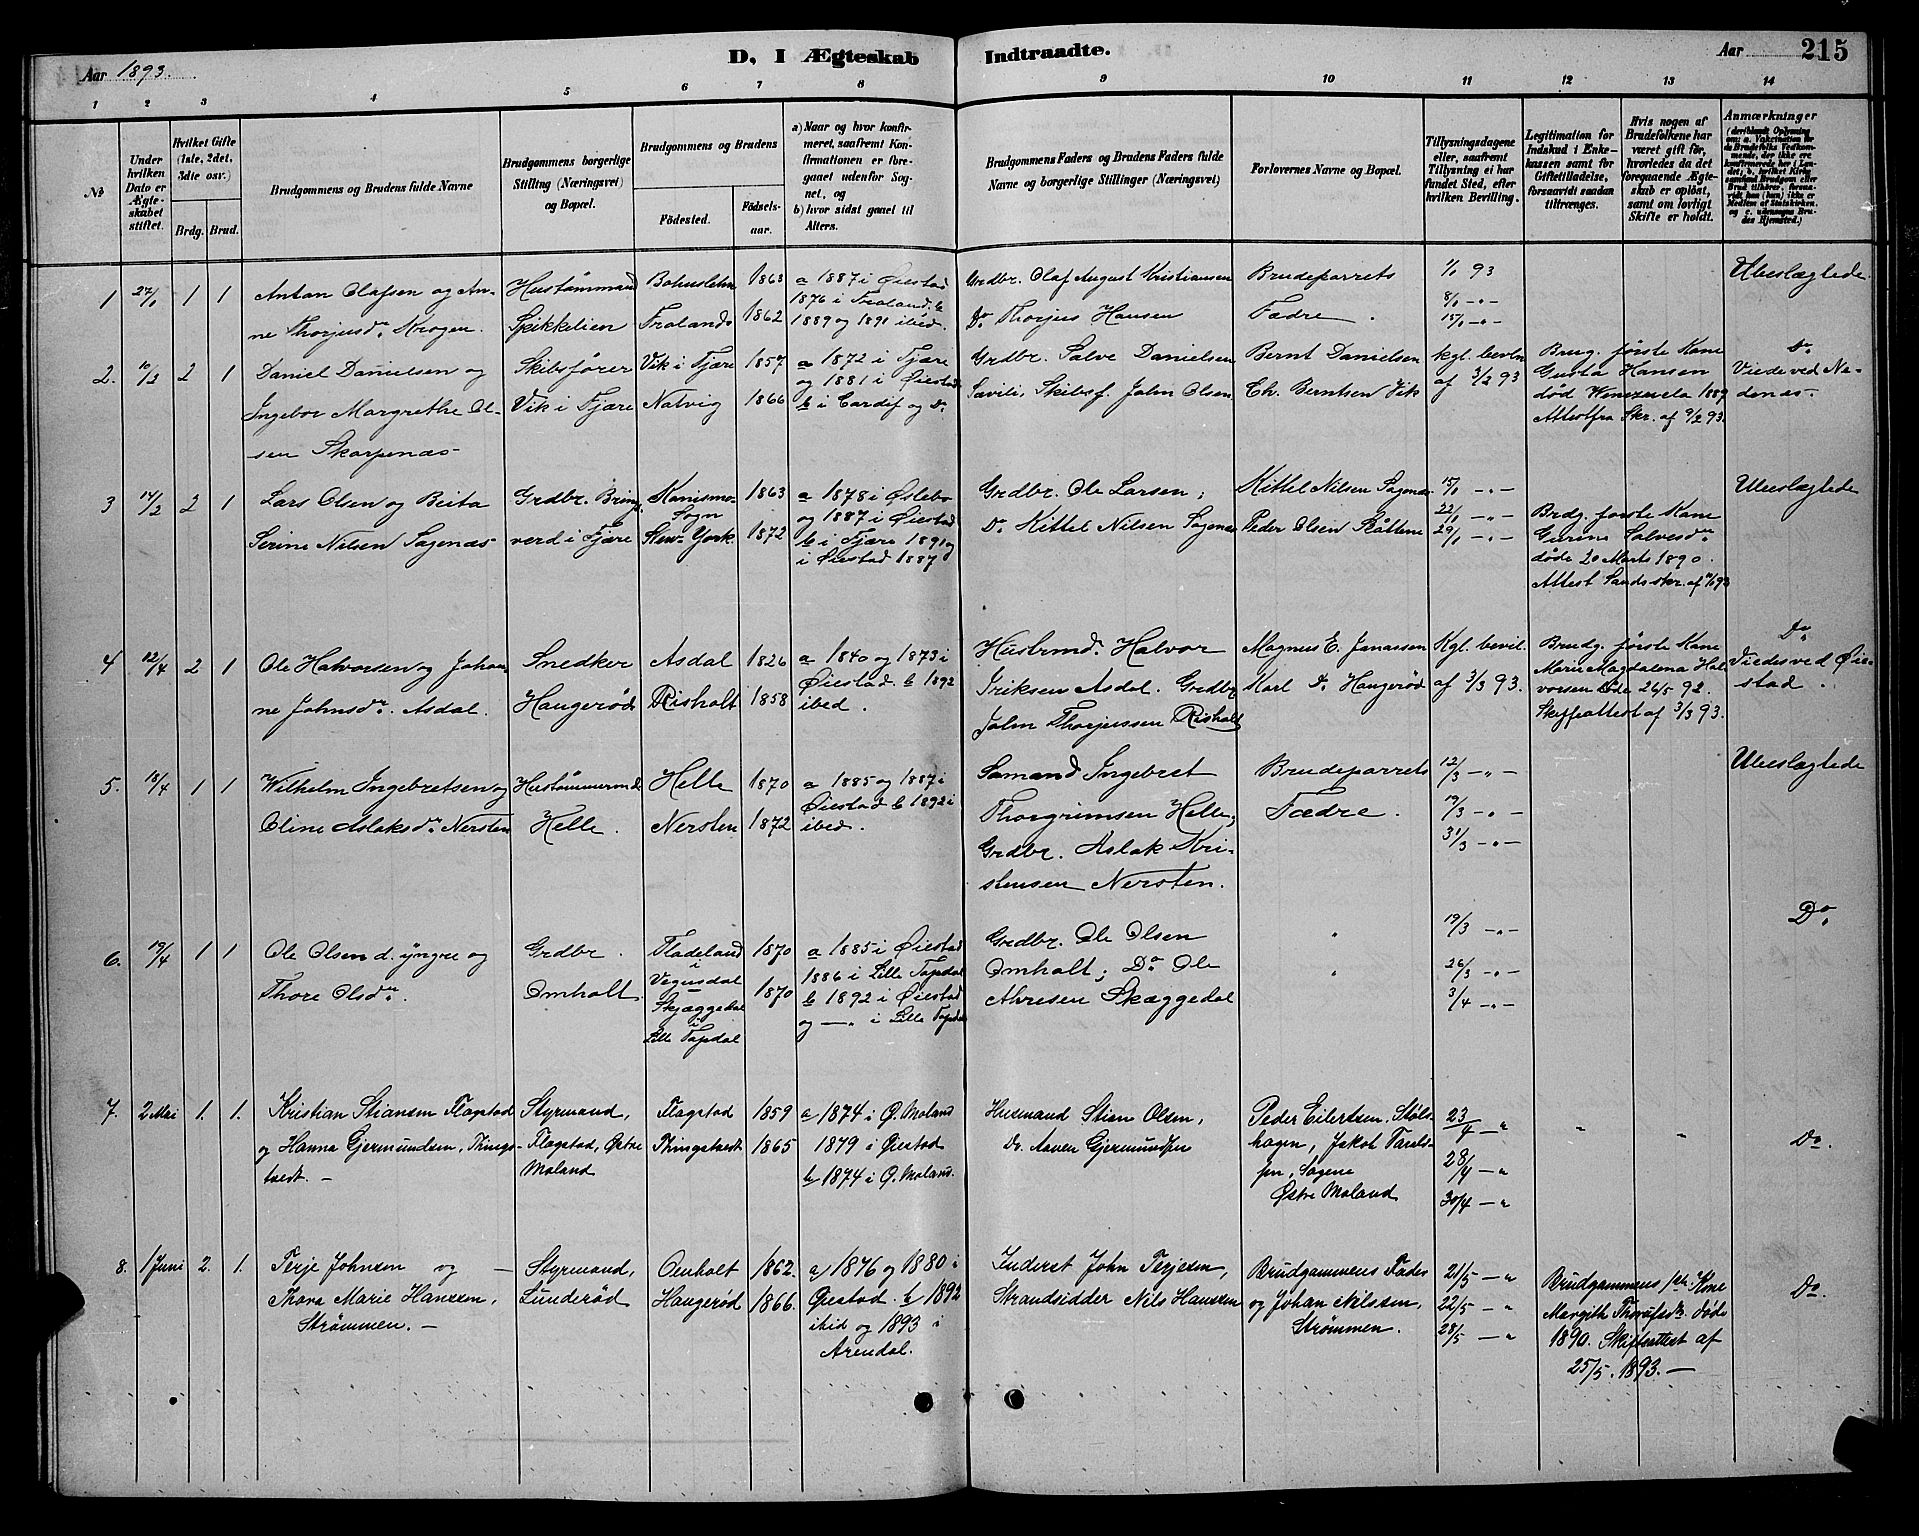 Aar 1893.
D, I Ægteskab Indtraadte.
Aar
215
1 2 3 4 5 6 7 8 9 10 11 12 13 14
No
Under hvilken Dato er Ægteskabet stiftet.
Hvilket Gifte (1ste, 2det, 3die osv.)
Brdg. Brud.
Brudgommens og Brudens fulde Navne
Brudgommens borgerlige Stilling (Næringsvei) og Bopæl.
Brudgommens og Brudens
Fødested.
Fødselsaar.
a) Naar og hvor konfirmeret, saafremt Konfirmationen er foregaaet udenfor Sognet, og
b) hvor sidst gaaet til Alters.
Brudgommens Faders og Brudens Faders fulde Navne og borgerlige Stillinger (Næringsvei)
Forlovernes Navne og Bopæl.
Tillysningsdagene eller, saafremt Tillysning ei har fundet Sted, efter hvilken Bevilling.
Legitimation for Indskud i Enkekassen samt for Giftetilladelse, forsaavidt saadan tiltrænges.
Hvis nogen af Brudefolkene har været gift før, hvorledes da det foregaaende Ægteskab er opløst, samt om lovligt Skifte er holdt.
Anmærkninger
1 27/1 1 1
Antan Olafsen og Anne Thorjusdr. Krogen.
Hustømmand
Spikkelien
Bohuslehn
Frolands
1863
1862
a 1887 i Øiestad
1876 i Froland; b
1889 og 1891 ibed.
Grdbr. Olaf August Kristiansen
Do Thorjus Hansen
Brudeparrets
Fædre.
1/1 93
8/1 -"-
15/1 -"-
Ubeslægtede
2. 10/2 2 1
Daniel Danielsen og
Ingebor Margrethe Olsen Skarpenæs
Skibsfører
Vik i Fjære
Vik i Fjære
Natvig
1857
1866
a 1872 i Fjære
og 1881 i Øiestad
b i Cardif og Do.
Grdbr. Salve Danielsen
Savili; Skibsf. John Olsen
Bernt Danielsen
Ch. Berntsen Vik
kgl. bevln
af 3/2 93
Brug. første Kone
Gusta Hansen
død Wenezuela 1889
Attest fra Skr. af 9/2 93.
Do
Viede ved Nedenæs.
3 14/2 2 1
Lars Olsen og Beita
Serine Nilsen Sagenæs
Grdbr. Bringsverd i Fjære
Sogn
New York.
1863
1872
a 1878 i Øslebo
og 1887 i Øiestad
b i Fjære 1891 og
i Øiestad 1887
Grdbr. Ole Larsen;
Do Kittel Nilsen Sagenæs
Kittel Nilsen Sagenæs
Peder Olsen Råttene
15/1 -"-
22/1 -"-
29/1 -"-
Brdg. første Kone
Gurine Salvesdr.
døde 20 Marts 1890.
Attest Sandsskr. af
Ubeslægtede
4 12/4 2 1
Ole Halvorsen og Johanne Johnsdr. Asdal.
Snedker
Haugerød
Asdal
Risholt
1826
1858
a 1840 og 1873 i
Øiestad. b 1892
ibed.
Husbmd. Halvor
Iriksen Asdal. Grdbr.
John Thorjussen Risholt
Magnus E. Jonassen
Karl Do. Haugerød
Kgl. bevil.
af 3/3 93.
Brudg. første Kone
Marie Magdalena Halvorsen døde 26/5 92.
Skifteattest af 3/3 93.
Do
Viedes ved Øiestad.
5. 18/4 1 1
Wilhelm Ingebretsen og
Oline Aslaksdr. Nersten
Hustømmermd
Helle.
Helle
Nersten
1870
1872
a 1885 og 1887 i
Øiestad b 1892 i
ibed.
Somand Ingebret
Thorgrimsen Helle;
Grdbr. Aslak Kristensen Nersten.
Brudeparrets
Fædre.
12/3 -"-
19/3 -"-
31/3 -"-
Ubeslægtede
6. 19/4 1 1
Ole Olsen d. yngre og
Thore Olsdr.
Grdbr.
Omholt.
Fladeland
i
Vegusdal
Skjæggedal
i
Lille Topdal
1870
1870
a 1885 i Øiestad
1886 i Lille Topdal
b 1892 i Øiestad
og -"- i Lille Topdal
Grdbr. Ole Olsen
Omholt; Do Ole
Alvesen Skæggedal
"
"
19/3 -"-
26/3 -"-
3/4 -"-
Do.
7. 2 Mai 1. 1.
Kristian Stiansen Flagstad
og Hanna Gjermundsen, Thingstvedt. -
Styrmand,
Flagstad, Østre
Moland
Flagstad
Thingstvedt
1859
1865
a 1874 i Ø. Moland
1879 i Øiestad
b 1874 i Ø. Moland.
Husmand Stian Olsen,
Do. Aaven Gjermundsen
Peder Eilertsen, Stølshagen, Jakob Taralsen, Sagene
Østre Moland
23/4 - "
28/4 - "
30/4 - "
"
"
Do.
8. 1 Juni 2. 1.
Terje Johnsen og -
Thora Marie Hanssen,
Strømmen. -
Styrmand,
Lunderød
Omholt
Haugerød
1862.
1866.
a) 1876 og 1880 i
Øiestad. b 1892
ibid og 1893 i
Arendal.
Inderst John Terjesen,
Strandsidder Nils Hanssen
Brudgammens Fader
og Johan Nilssen,
Strømmen.
21/5 - "
22/5 - "
28/5 - "
Brudgammens 1ste Kone
Margith døde
1890. Skifteattest af
25/5. 1893. -
Do.